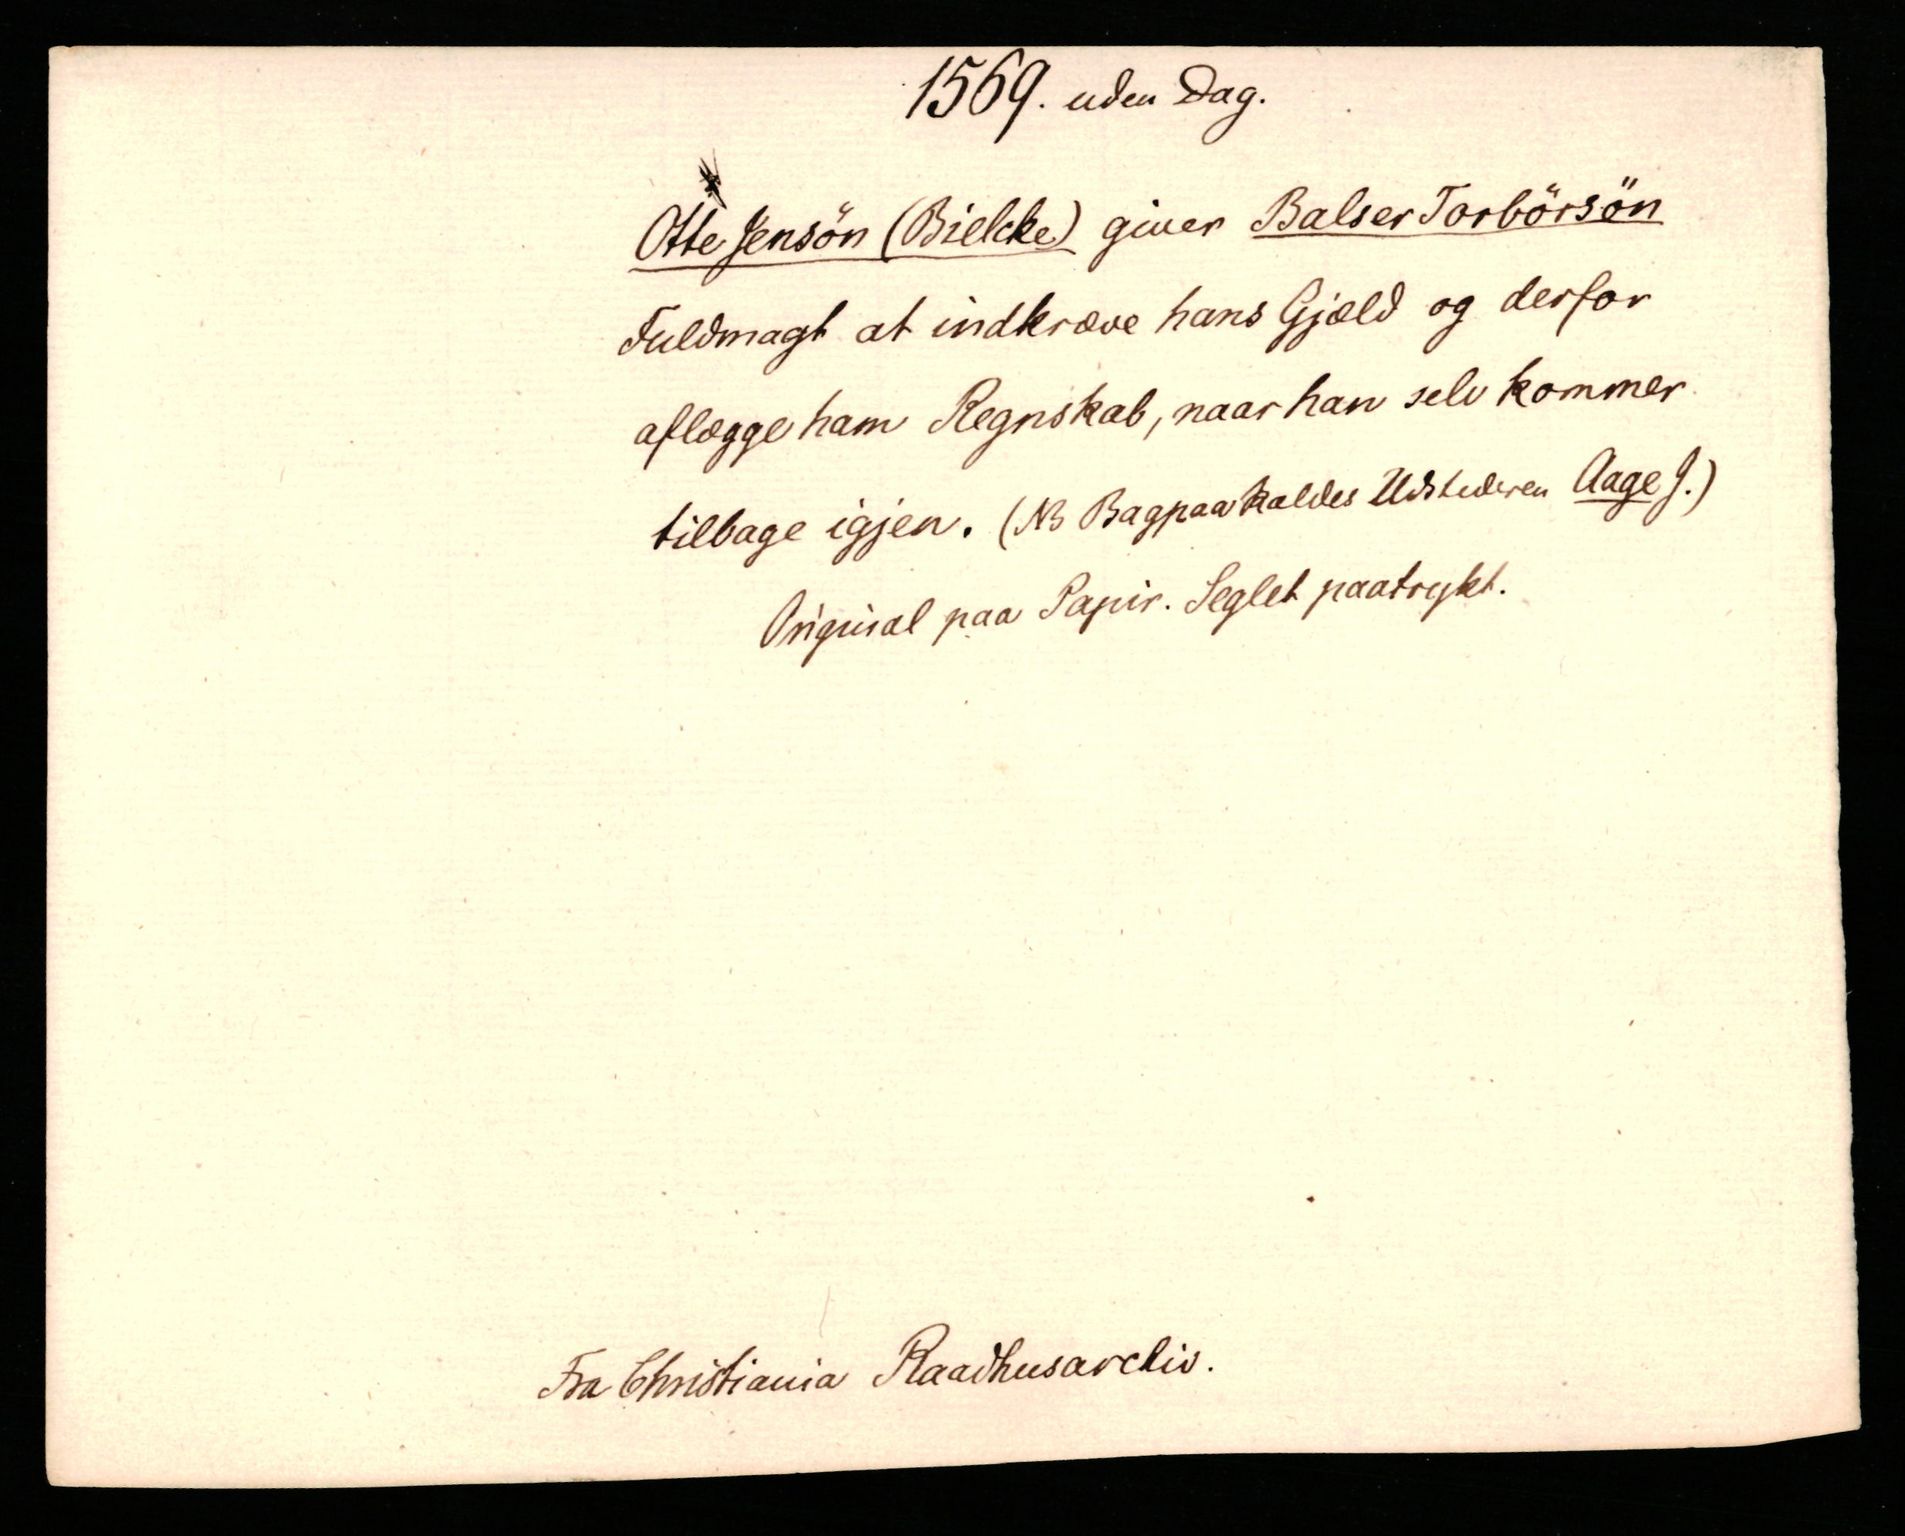 1569. uden Dag.
Otte Jensön (Bielcke) giver Balser Torbörsön
Fuldmagt at indkræve hans Gjæld og derfor
aflægge ham Regnskab, naar han selv kommer
tilbage igjen. (NB Bagpaa kaldes Udstederen Aage J.)
Original paa Papir. Seglet paatrykt.
Fra Christiania Raadhusarchiv.